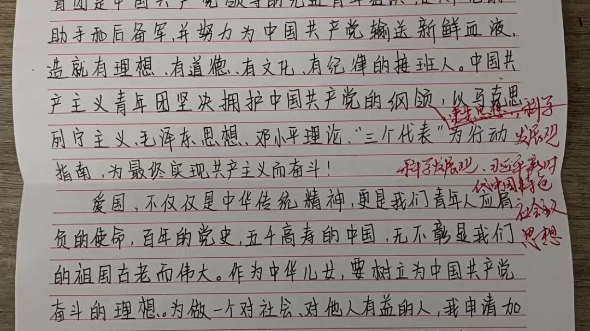 青团是中国共产党领导的先进青年
助手和后备军,并努力为中国共产党输送新鲜血液,
造就有理想、有道德、有文化、有纪律的接班人。中国共
产主义青年团坚决拥护中国共产党的纲领,以马克思
列宁主义、毛泽东思想、邓小平理论、“三个代表”为行动
指南,为最终实现共产主义而奋斗!
爱国,不仅仅是中华传统精神,更是我们青年人应肩
负的使命,百年的党史,五千高寿的中国,无不彰显我们
的祖国古老而伟大。作为中华儿女,要树立为中国共产党
奋斗的理想。为做一个对社会、对他人有益的人,我申请加
重要思想、科学
发展观
科学发展观、习近平新时
代中国特色
社会主义
思想